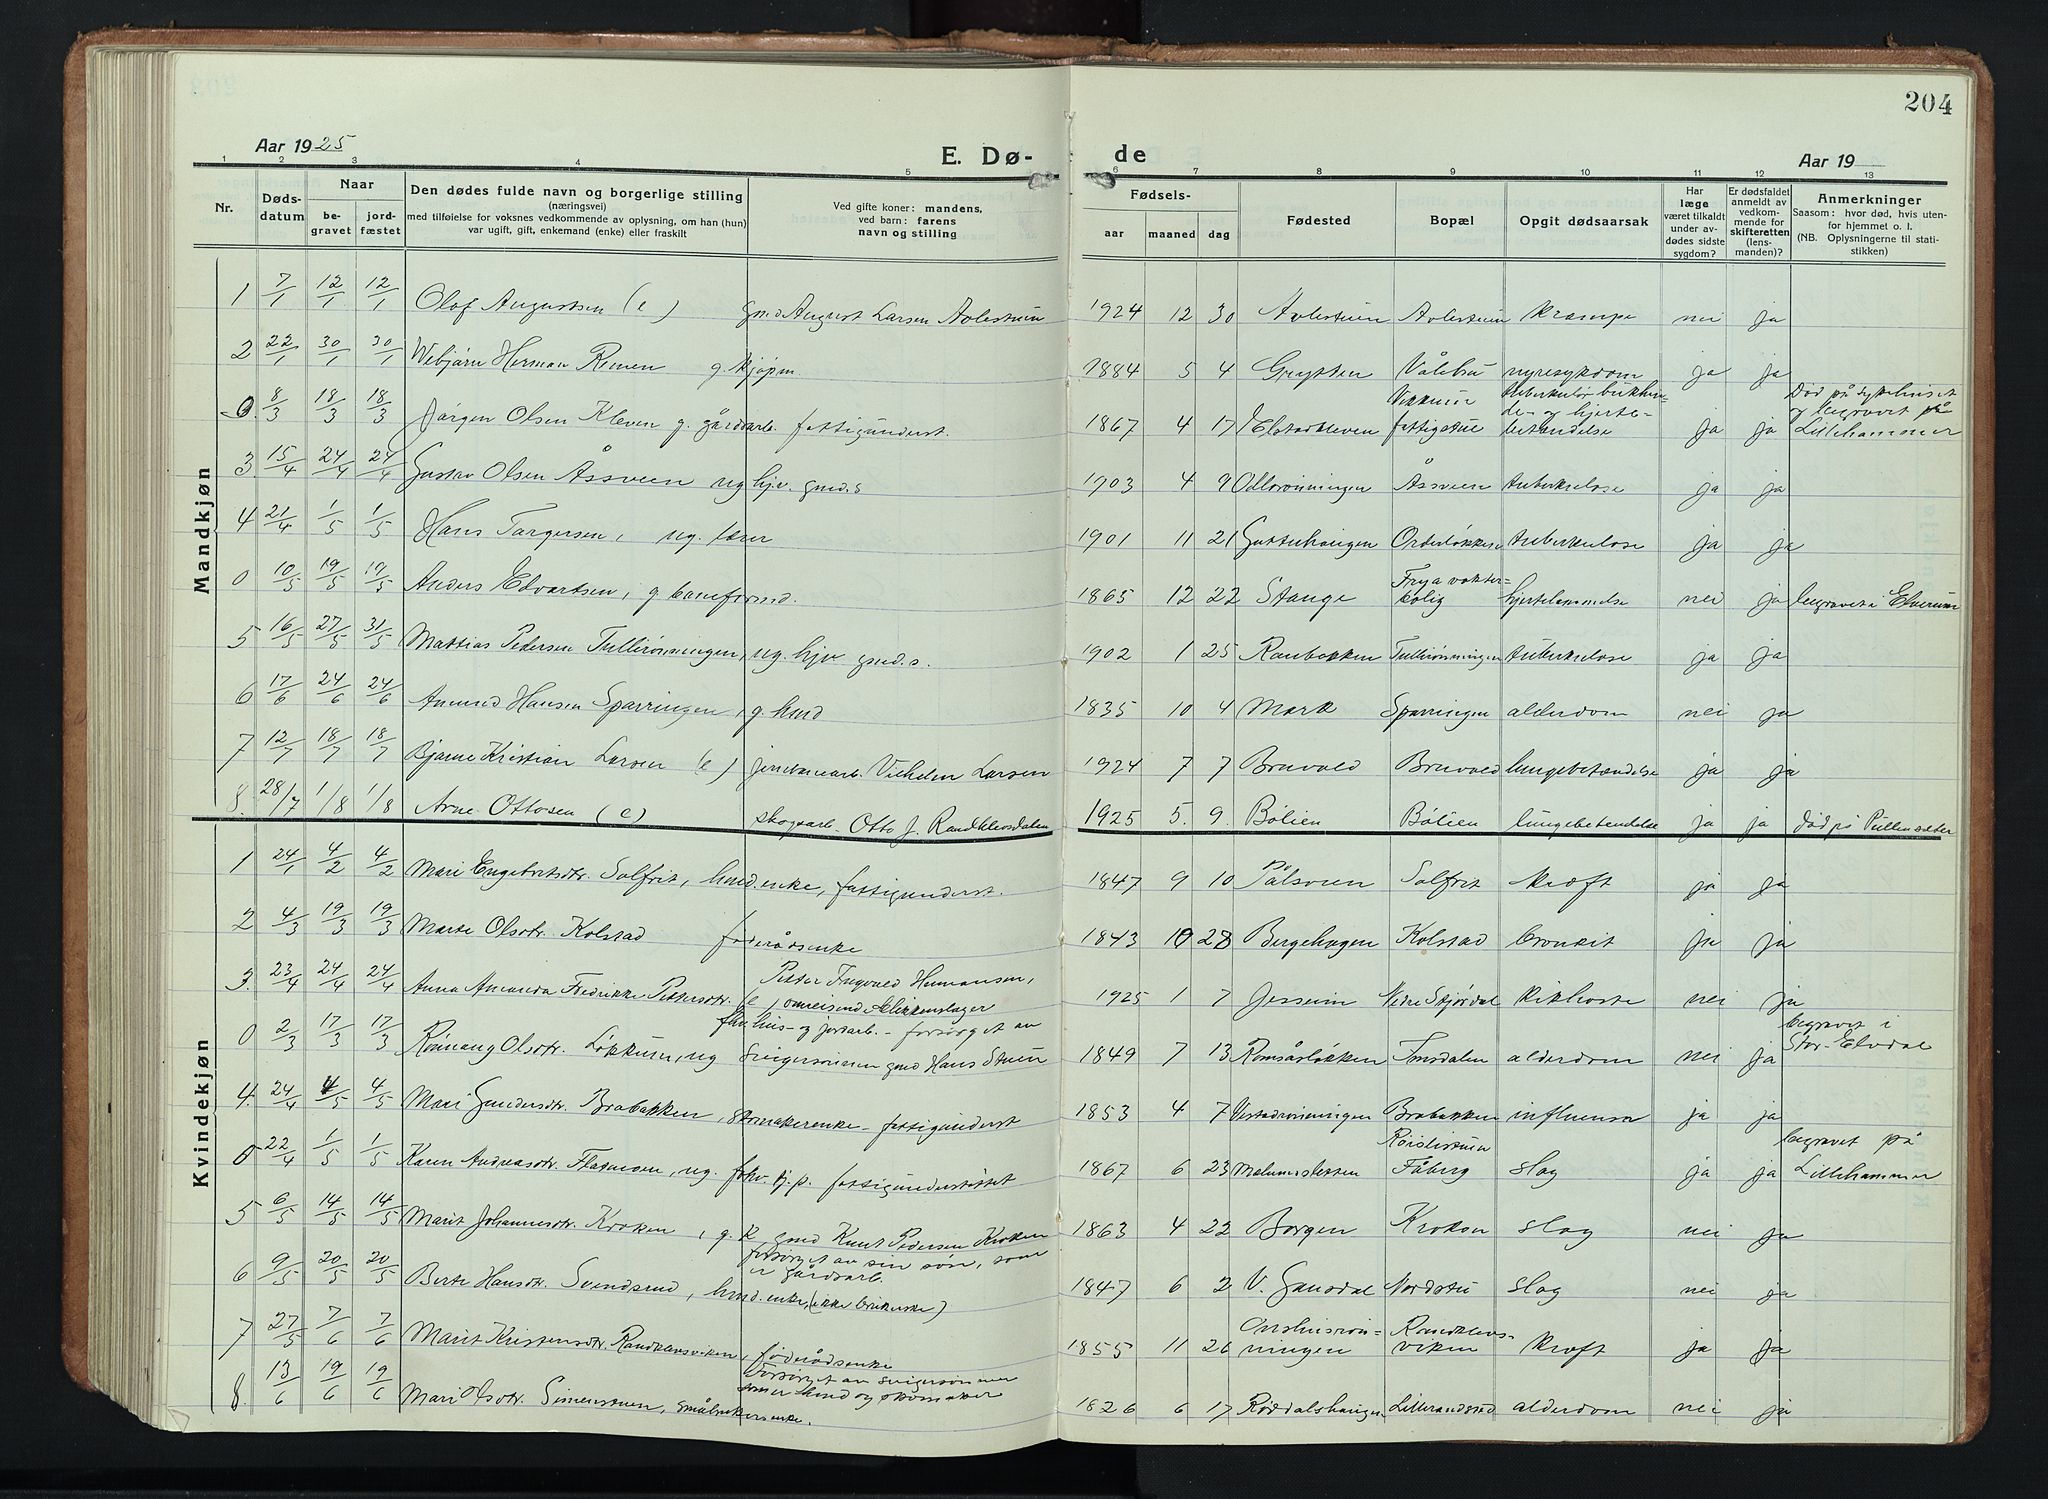 204
Aar 1925
E. Dø- de
Aar 19
1 2 3 4 5 6 7 8 9 10 11 12 13
Nr.
Døds-
datum
Naar
be-
gravet
jord-
fæstet
Den dødes fulde navn og borgerlige stilling
(næringsvei)
med tilføielse for voksnes vedkommende av oplysning, om han (hun)
var ugift, gift, enkemand (enke) eller fraskilt
Ved gifte koner: mandens,
ved barn: farens
navn og stilling
Fødsels-
aar maaned dag
Fødested
Bopæl
Opgit dødsaarsak
Har
læge
været tilkaldt
under av-
dødes sidste
sygdom?
Er dødsfaldet
anmeldt av
vedkom-
mende for
skifteretten
(lens-
manden)?
Anmerkninger
Saasom: hvor død, hvis uten-
for hjemmet o. l.
(NB. Oplysningerne til stati-
stikken)
Mandkjøn
1 7/1 12/1 12/1 Olaf Augustsen (e) gmd August Larsen Avlestuen 1924 12 30 Avlestuen Avlestuen Krampe nei ja
2 22/1 30/1 30/1 Webjørn Herman Remen g. kjøpm. 1884 5 4 Grytten Vålebru nyresykdom ja ja
0. 8/3 18/3 18/3 Jørgen Olsen Kleven g. gårdsarb. fattigunderst. 1867 4 17 Elstadkleven fattigstue betændelse ja ja Død på sykehuset
og begravet på
Lillehammer
3 15/4 24/4 24/4 Gustav Olsen Åssveen ug hjv. gmd.s 1903 4 9 Odlorønningen Åssveen Tuberkulose ja ja
4 21/4 1/5 1/5 Hans Torgersen, ug. lærer 1901 11 21 Tuberkulose ja ja
0 10/5 19/5 19/5 Anders Edvartsen, g baneformd. 1865 12 22 Stange Frya vokter-
bolig hjertelammelse nei ja begravet i Elverum
5 16/5 27/5 31/5 Mattias Pedersen Tullirønningen, ug. hjv gmd.s. 1902 1 25 Ranbakken Tullirønningen Tuberkulose ja ja
6 17/6 24/6 24/6 Amund Hansen Sparringen, g. hmd 1835 10 4 Mork Sparringen alderdom nei ja
7 12/7 18/7 18/7 Bjarne Kristian Larsen (e) jernbanearb. Vilhelm Larsen 1924 7 7 Bruvold Bruvold lungebetændelse ja ja
8. 28/7 1/8 1/8 Arne Ottosen (e) skogsarb. Otto J. Randklevsdalen 1925 5. 9. Bölien Bölien lungebetendelse ja ja død på Pullensæter
Kvindekjøn
1 24/1 4/2 4/2 Mari Engebretsdtr. Solfrit, hmd.enke, fattigunderst. 1847 9 10 Pålsveen Solfrit Kræft ja ja
2 4/3 19/3 19/3 Marte Olsdtr. Kolstad føderådsenke 1843 10 28 Bergehagen Kolstad bronkit ja ja
3. 23/4 24/4 24/4 Anna Amanda Fredrikke Pettersdtr. (e Petter Ingvald Hermansen,
, omreisend blikkenslager 1925 1 7 Jessum Nedre Skjørdal Kikhoste nei ja
0 2/3 17/3 17/3 Rønnaug Olsdtr. Løkkum, ug fhv hus- og jordarb. - forsørget av
svigersønnen gmd Hans Stuen 1849 7 13 Romsåsløkken alderdom nei ja begravet i
Stor-Elvdal
4. 24/4 4/5 4/5 Mari Gundersdtr. Brobakken, skomakerenke - fattigunderst 1853 4 7 Vestadrønningen Brobakken influensa ja ja
0 22/4 1/5 1/5 Karen Andreasdtr. ug. fhv. tj.p. fattigunderstøttet 1867 6 23 Fåberg slag ja ja begravet på
Lillehammer
5 6/5 14/5 14/5 Marit Johannesdtr. Kroken, g.k. gmd Knut Pedersen Kroken 1863 4 22 Borgen Kroken slag nei ja
6 9/5 20/5 20/5 Berte Hansdtr. Svendsrud, hmd.enke, (ikke brukerske) forsørget av sin søn, som
er gårdsarb. 1847 6 2 V. Gausdal Nordstu slag nei ja
7 27/5 7/6 7/6 Marit Kristensdtr. Randklevsviken, føderådsenke 1855 11 26 Onshusrøn-
ningen Randklevs-
viken Kræft ja ja
8. 13/6 19/6 19/6 Mari Olsdtr. Simenstuen, småbrukersenke. Forsørget av svigersønner
som er hmd og skomaker 1826 6 17 Röddalshaugen Lillerandstad alderdom nei ja